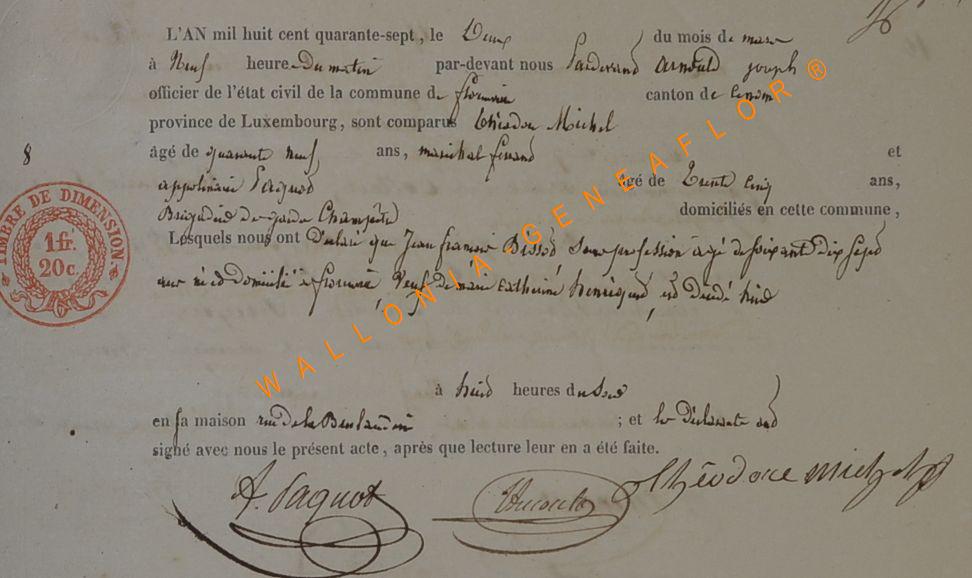 L'AN mil huit cent quarante-sept, le Deux du mois de mars
à Neuf heures Du matin par-devant nous arnould joseph
officier de l'état civil de la commune de florenville canton de
province de Luxembourg, sont comparus théodore Michel
8 âgé de quarante neuf ans, marechal ferrant et
appolinaire Jacquot âgé de Trente Cinq ans,
Brigadier De garde Champêtre domiciliés en cette commune,
Lesquels nous ont Déclaré que Jean françois sans profession âgé de soixante Dix sept
ans né et Domicilié à florenville Veuf De marie Catherine henriquet est Décédé hier
à huit heures du Soir
en sa maison rue de la ; et les Déclarants ont
signé avec nous le présent acte, après que lecture leur en a été faite.
A. Jaquot théodore michel
TIMBRE DE DIMENSION
1 fr.
20 c.
WALLONIA GENEAFLOR ®